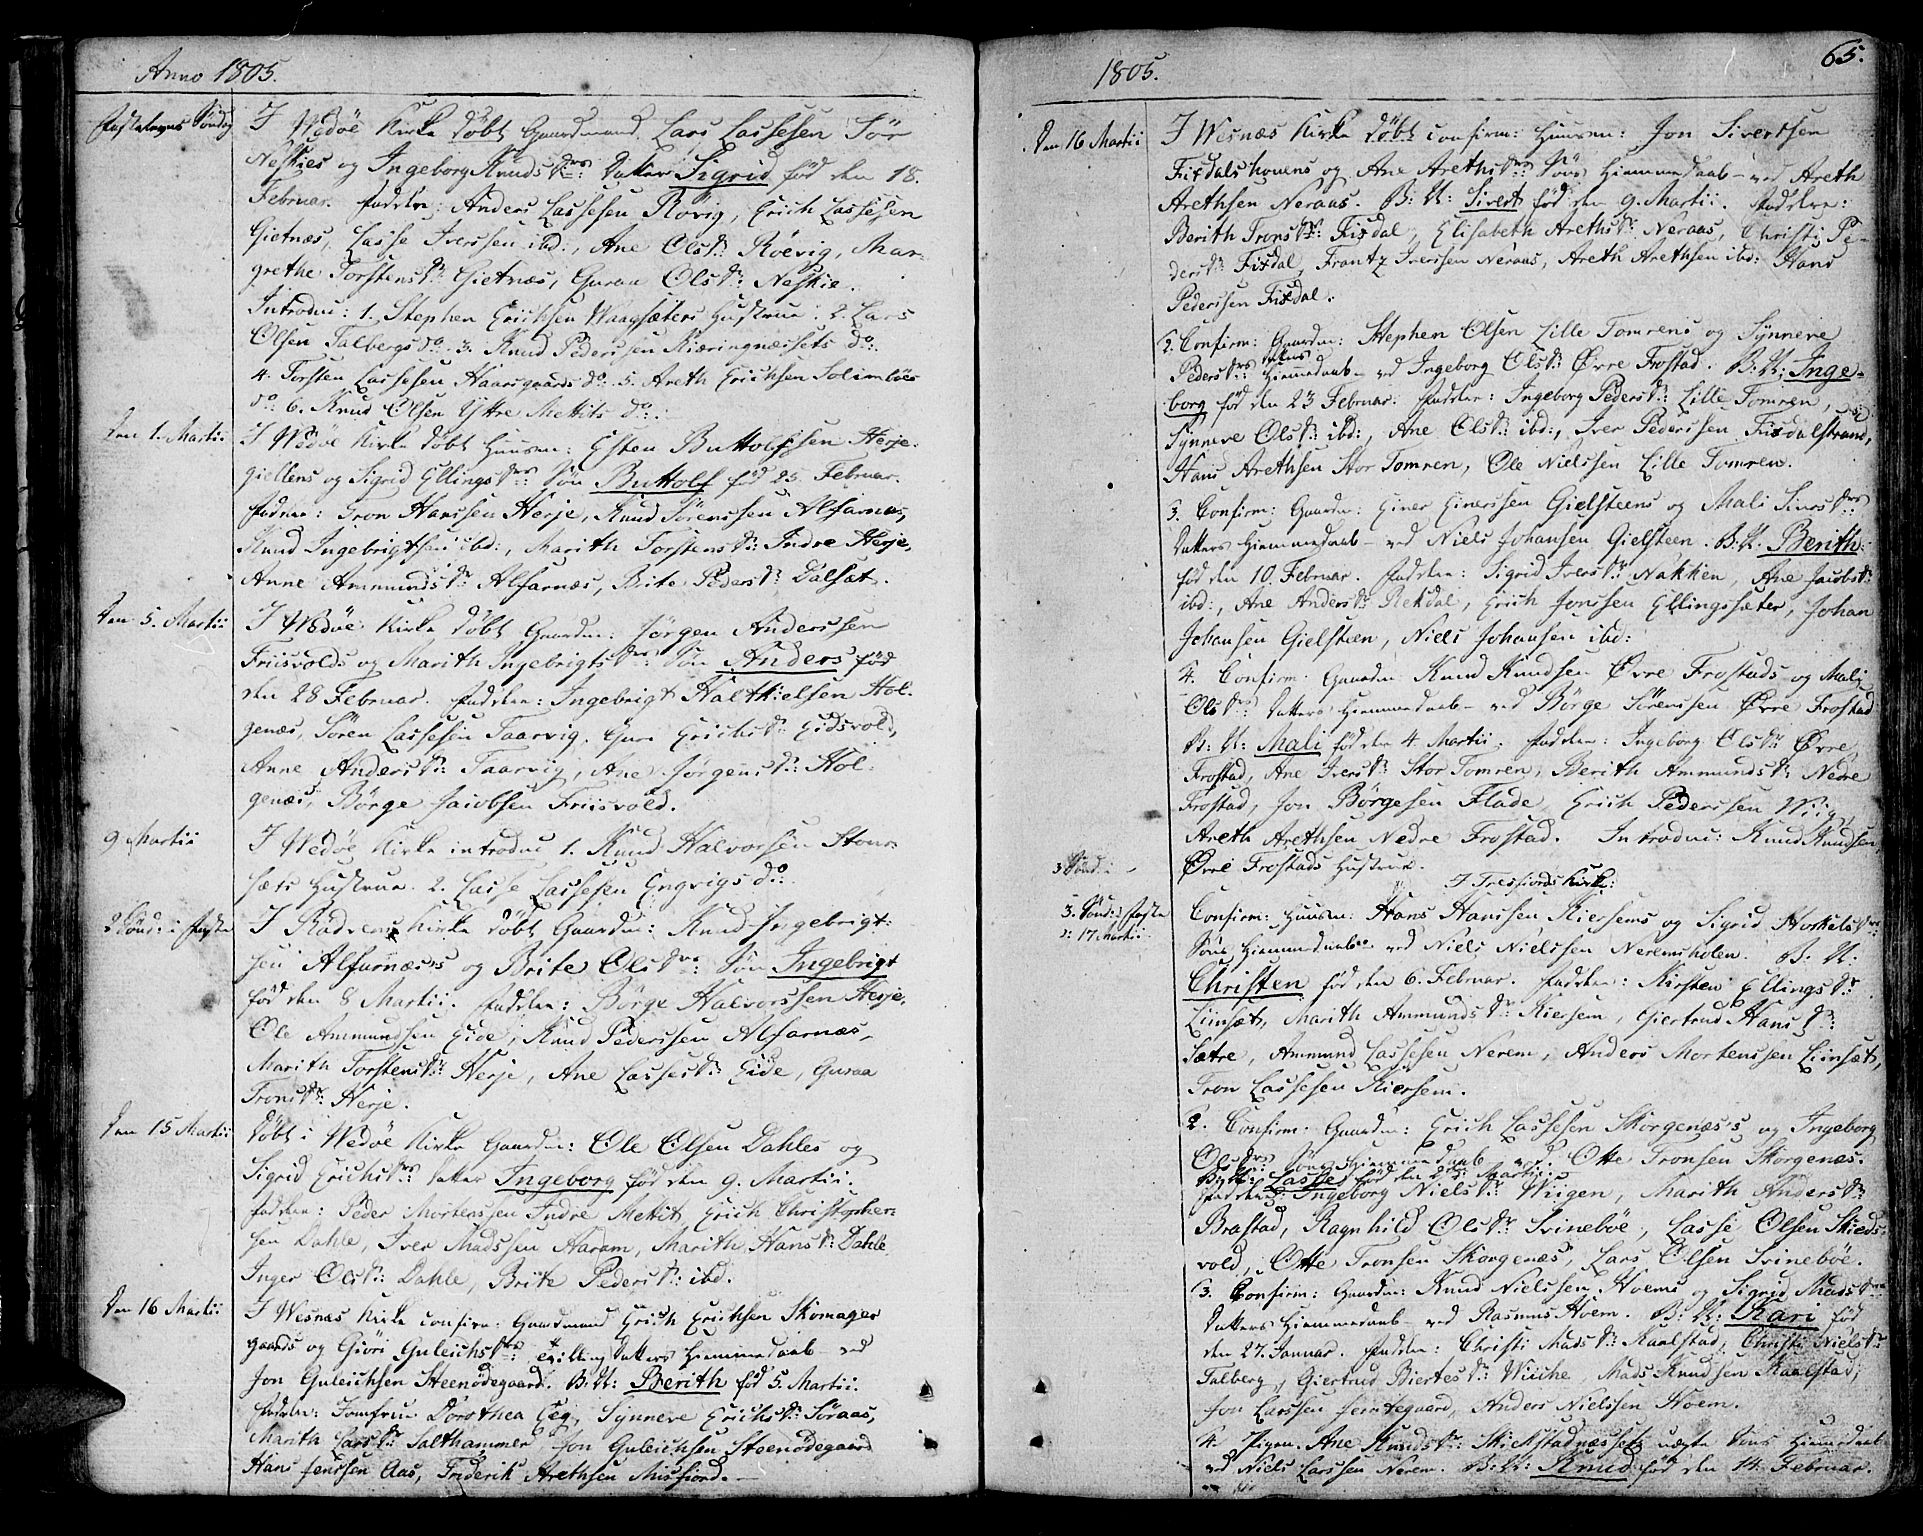 Anno 1805.
Fastelavns Søndag
I Wedøe Kirke døbt Gaardmand Lars Lassesen Sør
Neskies og Ingeborg Knudsdrs: datter Sigrid fød den 18.
Februar. Faddere: Anders Lassesen Rövig, Erich Lassesen
Gietnæs, Lasse Iverssen ibd:, Ane Olsdr: Röevig, Mar-
grethe Torstensdr: Gietnæs, Guraa Olsdr: Neskie.
Introdu: 1. Stephen Erichsen Waagsæters Hustrue. 2. Lars
Olsen Talbergs do. 3. Knud Pederssen Kiæringnæssets do:
4. Torsten Lassesen Haarsgaards do. 5. Areth Erichsen Solimböes
do: 6. Knud Olsen Yttre Mettets do:
Den 1. Martii
I Wedöe Kirke døbt Huusm: Esten Buttolfssen Herje-
giellens og Sigrid Ellingsdrs: Søn Buttolf fød 25. Februar.
Faddere: Tron Hanssen Herje, Knud Sørenssen Alfarnæs,
Knud Ingebrigtsen ibd:, Marith Torstensdr: Indre Herje,
Anne Ammundsdr: Alfarnæs, Brite Pedersdr: Dalsæt.
Den 5. Martii
I Wedöe Kirke døbt Gaardm: Jørgen Anderssen
Friisvolds og Marith Ingebrigtsdrs: Søn Anders fød
den 28 Februar. Faddere: Ingebrigt Halthielsen Hol-
genæs, Søren Lassesen Taarvig, Guri Erichsdr: Eidsvold,
Anne Andersdr: Taarvig, Ane Jørgensdr: Hol-
genæs, Börge Jacobsen Friisvold.
9 Martii
I Wedöe Kirke introdue 1. Knud Halvorsen Stour-
sæts Hustrue. 2. Lasse Lassesen Engvigs do:
2 Sönd: i Faste
I Rödvens Kirke døbt Gaardm: Knud Ingebrigt-
sen Alfarnæs's og Brite Olsdrs: Søn Ingebrigt
fød den 8 Martii. Faddere: Börge Halvorssen Herje,
Ole Ammundsen Eide, Knud Pederssen Alfarnæs,
Marith Torstensdr: Herje, Ane Lassesdr: Eide, Guraa
Tronsdr: Herje.
Den 15 Martii
Døbt i Wedöe Kirke Gaardm: Ole Olsen Dahles og
Sigrid Erichsdrs: datter Ingeborg fød den 9. Martii.
Faddere: Peder Mortenssen Indre Mettet, Erich Christopher-
sen Dahle, Iver Madssen Aaram, Marith Hansdr: Dahle
Inger Olsdr: Dahle, Brite Pedersdr: ibd.
Den 16 Martii
I Wesnæs Kirke confirm: Gaardmand Erich Erichsen Skomager
gaards og Giöri Guleichsdrs: tvilling datters Hiemmedaab - ved
Jon Guleichsen Steenödegaard. B: N: Berith fød 5. Martii.
Faddere: Jomfrue Dorothea Eeg, Synneve Erichsdr: Söraas,
Marith Larsdr: Salthammer, Jon Guleichsen Steenödegaard
Hans Jenssen Aas, Friderik Arethsen Misfiord.
1805.
65.
Den 16 Martii
I Wesnæs Kirke døbt confirm: Huusm: Jon Sivertsen
Fixdalshouens og Ane Arethsdrs: Søns Hiemmedaab - ved Areth
Arethsen Neraas. B: N: Sivert fød den 9. Martii. Faddere:
Berith Tronsdr: Fixdal, Elisabeth Arethsdr: Neraas, Christi Pe-
dersdr: Fixdal, Frantz Iverssen Neraas, Areth Arethsen ibd: Hans
Pederssen Fixdal.
2. Confirm: Gaardm: Stephen Olsen Lille Tomrens og Synneve
Pedersdrs: datters Hiemmedaab - ved Ingeborg Olsdr: Øvre Frostad. B: N: Inge-
borg fød den 23 Februar. Faddere: Ingeborg Pedersdr: Lille Tomren,
Synneve Olsdr: ibd:, Ane Olsdr: ibd:, Iver Pederssen Fixdalstrand,
Hans Arethsen Stor Tomren, Ole Nielssen Lille Tomren.
3. Confirm: Gaardm: Einer Einerssen Gielsteens og Mali Iversdrs:
datters Hiemmedaab - ved Niels Johansen Gielsteen. B: N: Berith
fød den 10. Februar. Faddere: Sigrid Iversdr: Nakken, Ane Jacobsdr:
ibd:, Ane Andersdr: Rekdal, Erich Jonssen Ellingsæter, Johan
Johansen Gielsteen, Niels Johansen ibd:
4. Confirm: Gaardm: Knud Knudsen Øvre Frostads og Mali
Olsdrs: datters Hiemmedaab - ved Börge Sörenssen Øvre Frostad
B: N: Mali fød den 4. Martii. Faddere: Ingeborg Olsdr: Øvre
Frostad, Ane Iversdr: Stor Tomren, Berith Ammundsdr: Nedre
Frostad, Jon Börgesen Flade, Erich Pederssen Wiig,
Areth Arethsen Nedre Frostad. Introdu: Knud Knudsen
Øvre Frostads Hustrue.
3 Sönd:
I Tresfiords Kirke:
3. Sönd: i Faste
d: 17. Martii
Confirm: Huusm: Hans Hanssen Kiersems og Sigrid Aslkelsdrs:
Søns Hiemmedaab - ved Niels Nielssen Neremsholen. B: N:
Christen fød den 6. Februar. Faddere: Kirsten Ellingsdr:
Liinsæt, Marith Ammundsdr: Kiersem, Giertrud Hansdr:
Sætre, Ammund Lassesen Nerem, Anders Mortenssen Liinsæt,
Tron Lassesen Kiersem.
2. Confirm: Gaardm: Erich Lassesen Skorgenæs's og Ingeborg
Olsdrs: Søns Hiemmedaab ved Otte Tronsen Skorgenæs.
B: N: Lasse fød den 2den Martii.
Faddere: Ingeborg Nielsdr: Wiigen, Marith Andersdr:
Brastad, Ragnhild Olsdr: Svinebøe, Lasse Olsen Skieds-
vold, Otte Tronsen Skorgenæs, Lars Olsen Svinebøe.
3. Confirm: Gaardm: Knud Nielssen Hoems og Sigrid Madsdrs:
datters Hiemmedaab - ved Rasmus Hoem. B: N: Kari fød
den 27. Januar. Faddere: Christi Madsdr: Kaalstad, Christi Nielsdr:
Talberg, Giertrud Biertesdr: Wiiche, Mads Knudsen Kaalstad,
Jon Larssen Jenstegaard, Anders Nielssen Hoem.
4. Pigen Ane Knudsdr: Skiekstadnæssets uægte Søns Hiemmedaab
ved Niels Larssen Nerem. B: N: Knud fød den 14 Februar.